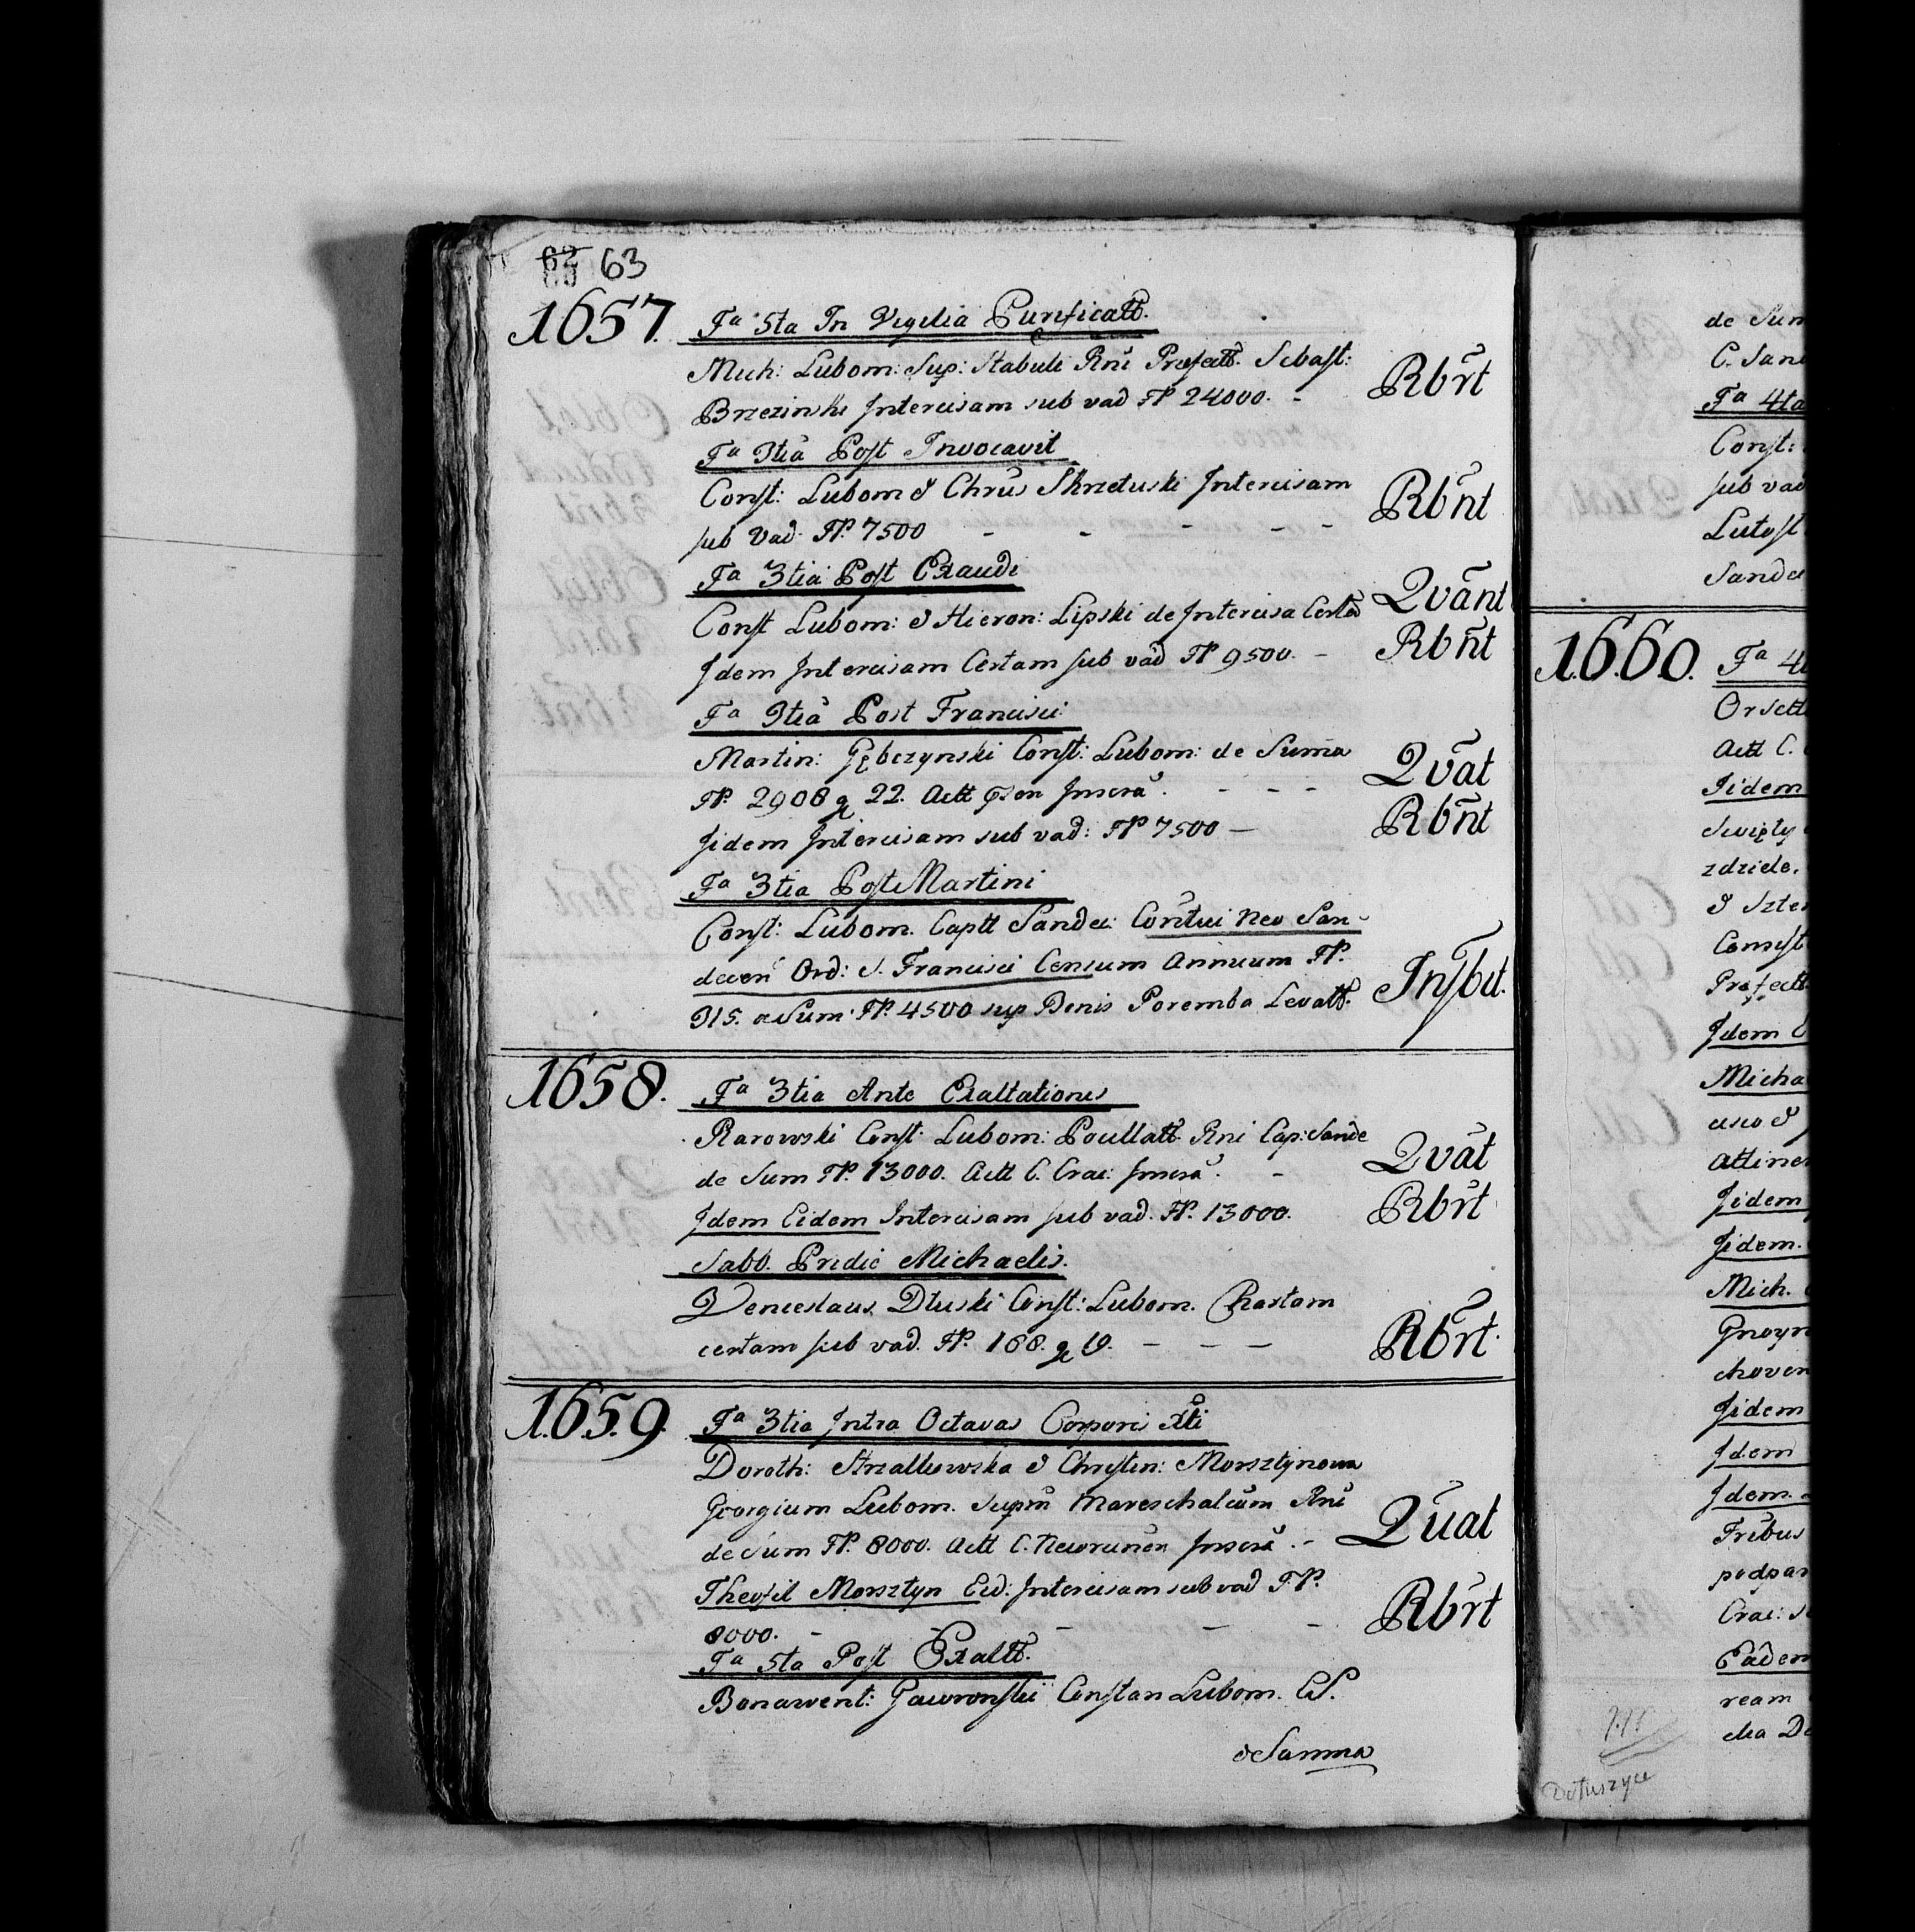 62 63
1657. Fa 5ta In Vigilia Purificatt.
Mich: Lubom: Sup: Stabuli Rni Prefectt. Sebast: Rbrt
Brzezinski Intercisam sub vad FP 24000. -
Fa 3tia Post Invocavit
Const: Lubom & Chrus Skrzetuski Intercisam Rbnt
sub Vad. FP. 7500 - - - - -
Fa 3tia Post Exaudi
Const Lubom: & Hieron: Lipski de Intercisa Certa Qvant
Idem Intercisam Certam sub vad FP 9500. - Rbnt
Fa 3tia Post Francisci
Martin: Gębczynski Const: Lubom: de Suma Qvat
FP. 2908 g 22. Actt Insera. - - -
Iidem Intercisam sub vad: FP 7500 - Rbnt
Fa 3tia Post Martini
Const: Lubom. Captt Sandec: Contui Neo San-
decen Ord: S. Francisci Censum Annuum FP. Inscbit.
315. a Sum. FP. 4500 sup Benis Poremba Levatt.
1658. Fa 3tia Ante Exaltationis
Rarowski Const: Lubom: Pocillatt Rni Cap: Sande Qvat
de Sum FP. 13000. Actt C. Crac: Insera. -
Idem Eidem Intercisam sub vad. FP. 13000. Rbrt
Sabb. Pridie Michaelis.
Venceslaus Dłuski Const: Lubom. Chartam
certam sub vad. FP. 168. g - - - Rbrt.
1659. Fa 3tia Intra Octavas Corporis Xti
Doroth: Strzałkowska & Christin: Morsztynowa
Georgium Lubom. Supm Mareschalcum Rni Quat
de Sum FP. 8000. Actt C. Insera. -
Theofil Morsztyn Eid: Intercisam sub vad FP. Rbrt
8000. - - - - -
Fa 5ta Post Exaltt.
Bonawent: Gawronski Constan Lubom. CS.
de Summa
de Sum
C. Sand
Fa 4ta
Const:
sub vad
Lutost
Sande
1660. Fa 4t
Orsett
Actt C.
Iidem
Swięty
zdziele,
& Szte
Comist
Prefectt
Idem
Micha
cisco &
Attinen
Iidem
Iidem.
Mich.
Gnoyn
chovien
Iidem
Idem
Idem.
Tribus
podpar
Crac:
Eadem
ream
cha D